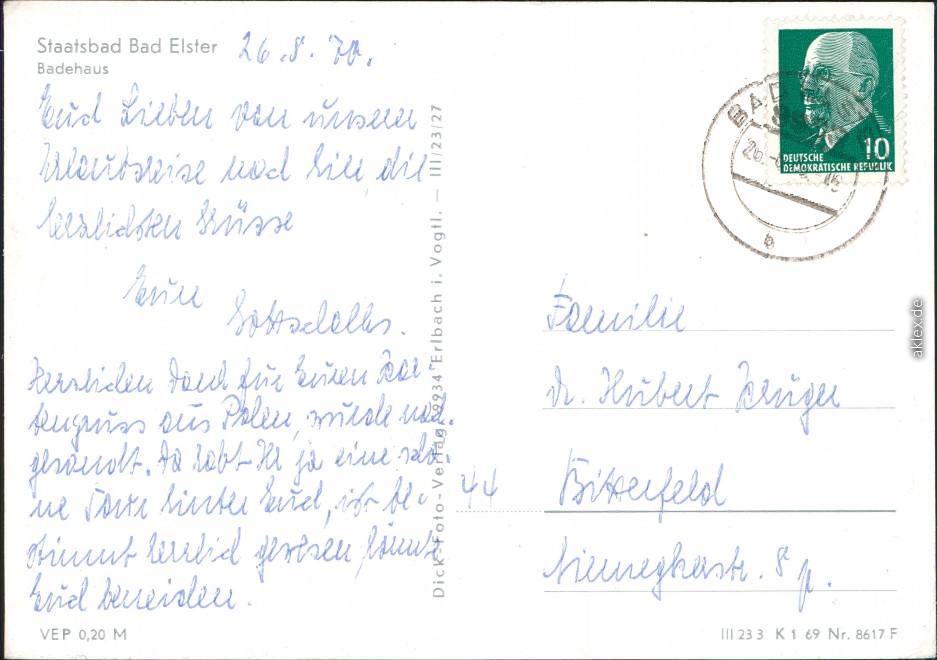 Staatsbad Bad Elster
Badehaus
26.8.70.
Euch Lieben von unserer
Urlaubsreise nach hier die
herzlichsten Grüsse
Eure
Gottschalks.
Herzlichen Dank für Euren Kar
tengruss aus Polen, wurde nach
gesandt. Da habt Ihr ja eine schö-
ne Tour hinter Euch, ist be-
stimmt herrlich gewesen, könnte
Euch beneiden.
VEP 0,20 M
Dick-Foto-Verlag, 9934 Erlbach i. Vogtl. — III/23/27
DEUTSCHE
DEMOKRATISCHE REPUBLIK
10
BAD
b
Familie
Dr. Hubert Krüger
44 Bitterfeld
Niemegkerstr. 8 p.
III 23 3 K 1 69 Nr. 8617 F
aklex.de